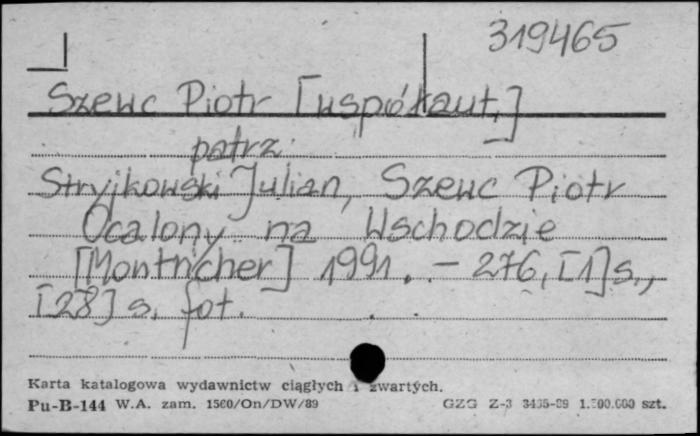 319465
Szewc Piotr [współaut.]
patrz
Stryjkowski Julian, Szewc Piotr
Ocalony na Wschodzie
[Montricher] 1991. – 276, [1] s.,
[28] s. fot.
Karta katalogowa wydawnictw ciągłych i zwartych.
Pu-B-144 W.A. zam. 1560/On/DW/89 GZG Z-3 3435-89 1.500.000 szt.